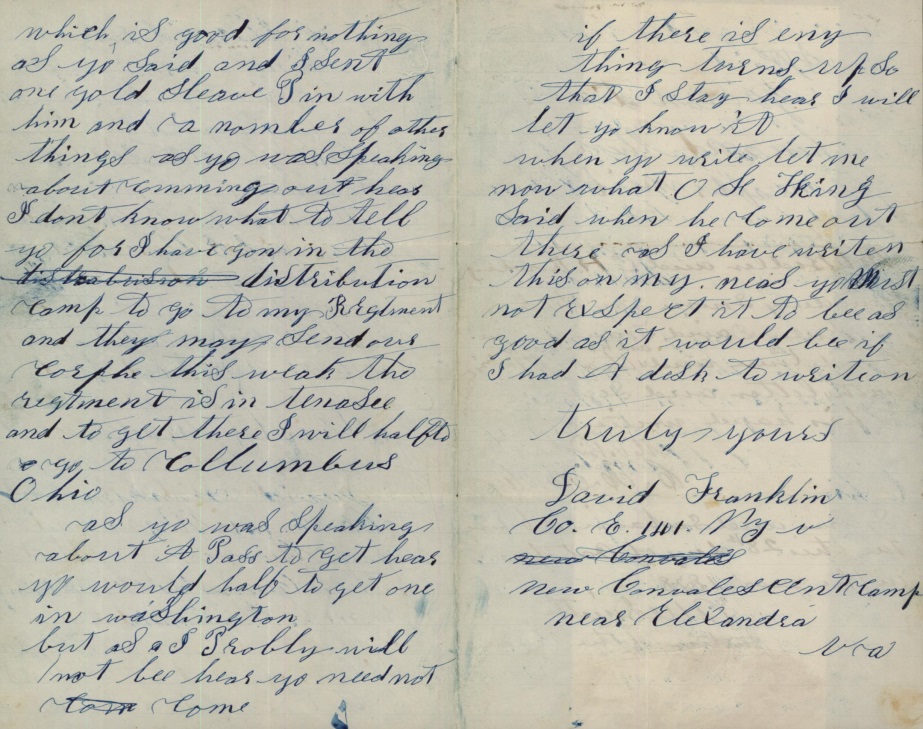 which is good for nothing
as yo said and I sent
one gold Sleave Pin with
him and a nomber of other
things as yo was Speaking
about comming out hear
I dont know what to tell
yo for I have gon in the
distribution
camp to go to my Regtment
and they may Send our
Corphe this weak the
regtment is in tenaSee
and to get there I will half to
go to Collumbus
Ohio
as yo was Speaking
about A Pass to get hear
yo would half to get one
in waShington
but as a S Probly will
not bee hear yo need not
Com Come
if there is eny
thing turns up So
that I Stay hear I will
let yo know it
when yo write let me
now what O
Said when he Come out
there as I have writen
this on my neas yo Must
not ExSpect it to bee as
good as it would bee if
I had A desk to write on
truly yours
David Franklin
Co. E. Ny v
new Convales
new ConvaleScent Camp
near Elexandra
Va